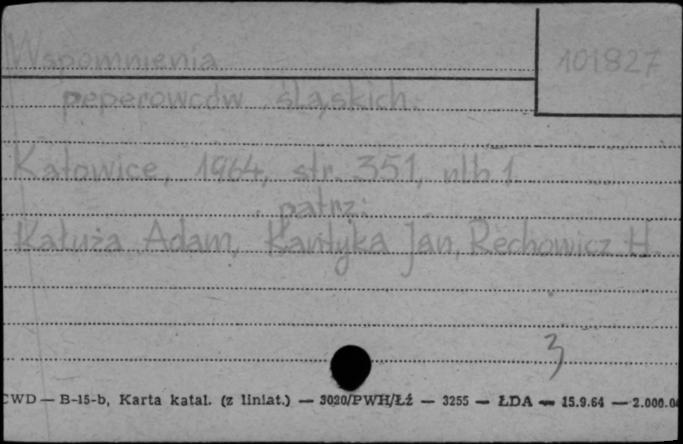 Wspomnienia
101827
peperowców śląskich.
Katowice, 1964, str. 351, nlb 1
patrz:
Kałuża Adam, Kantyka Jan, Rechowicz H.
3
CWD — B-15-b, Karta katal. (z liniat.) — 3020/PWH/Łź — 3255 — ŁDA — 15.9.64 — 2.000.0